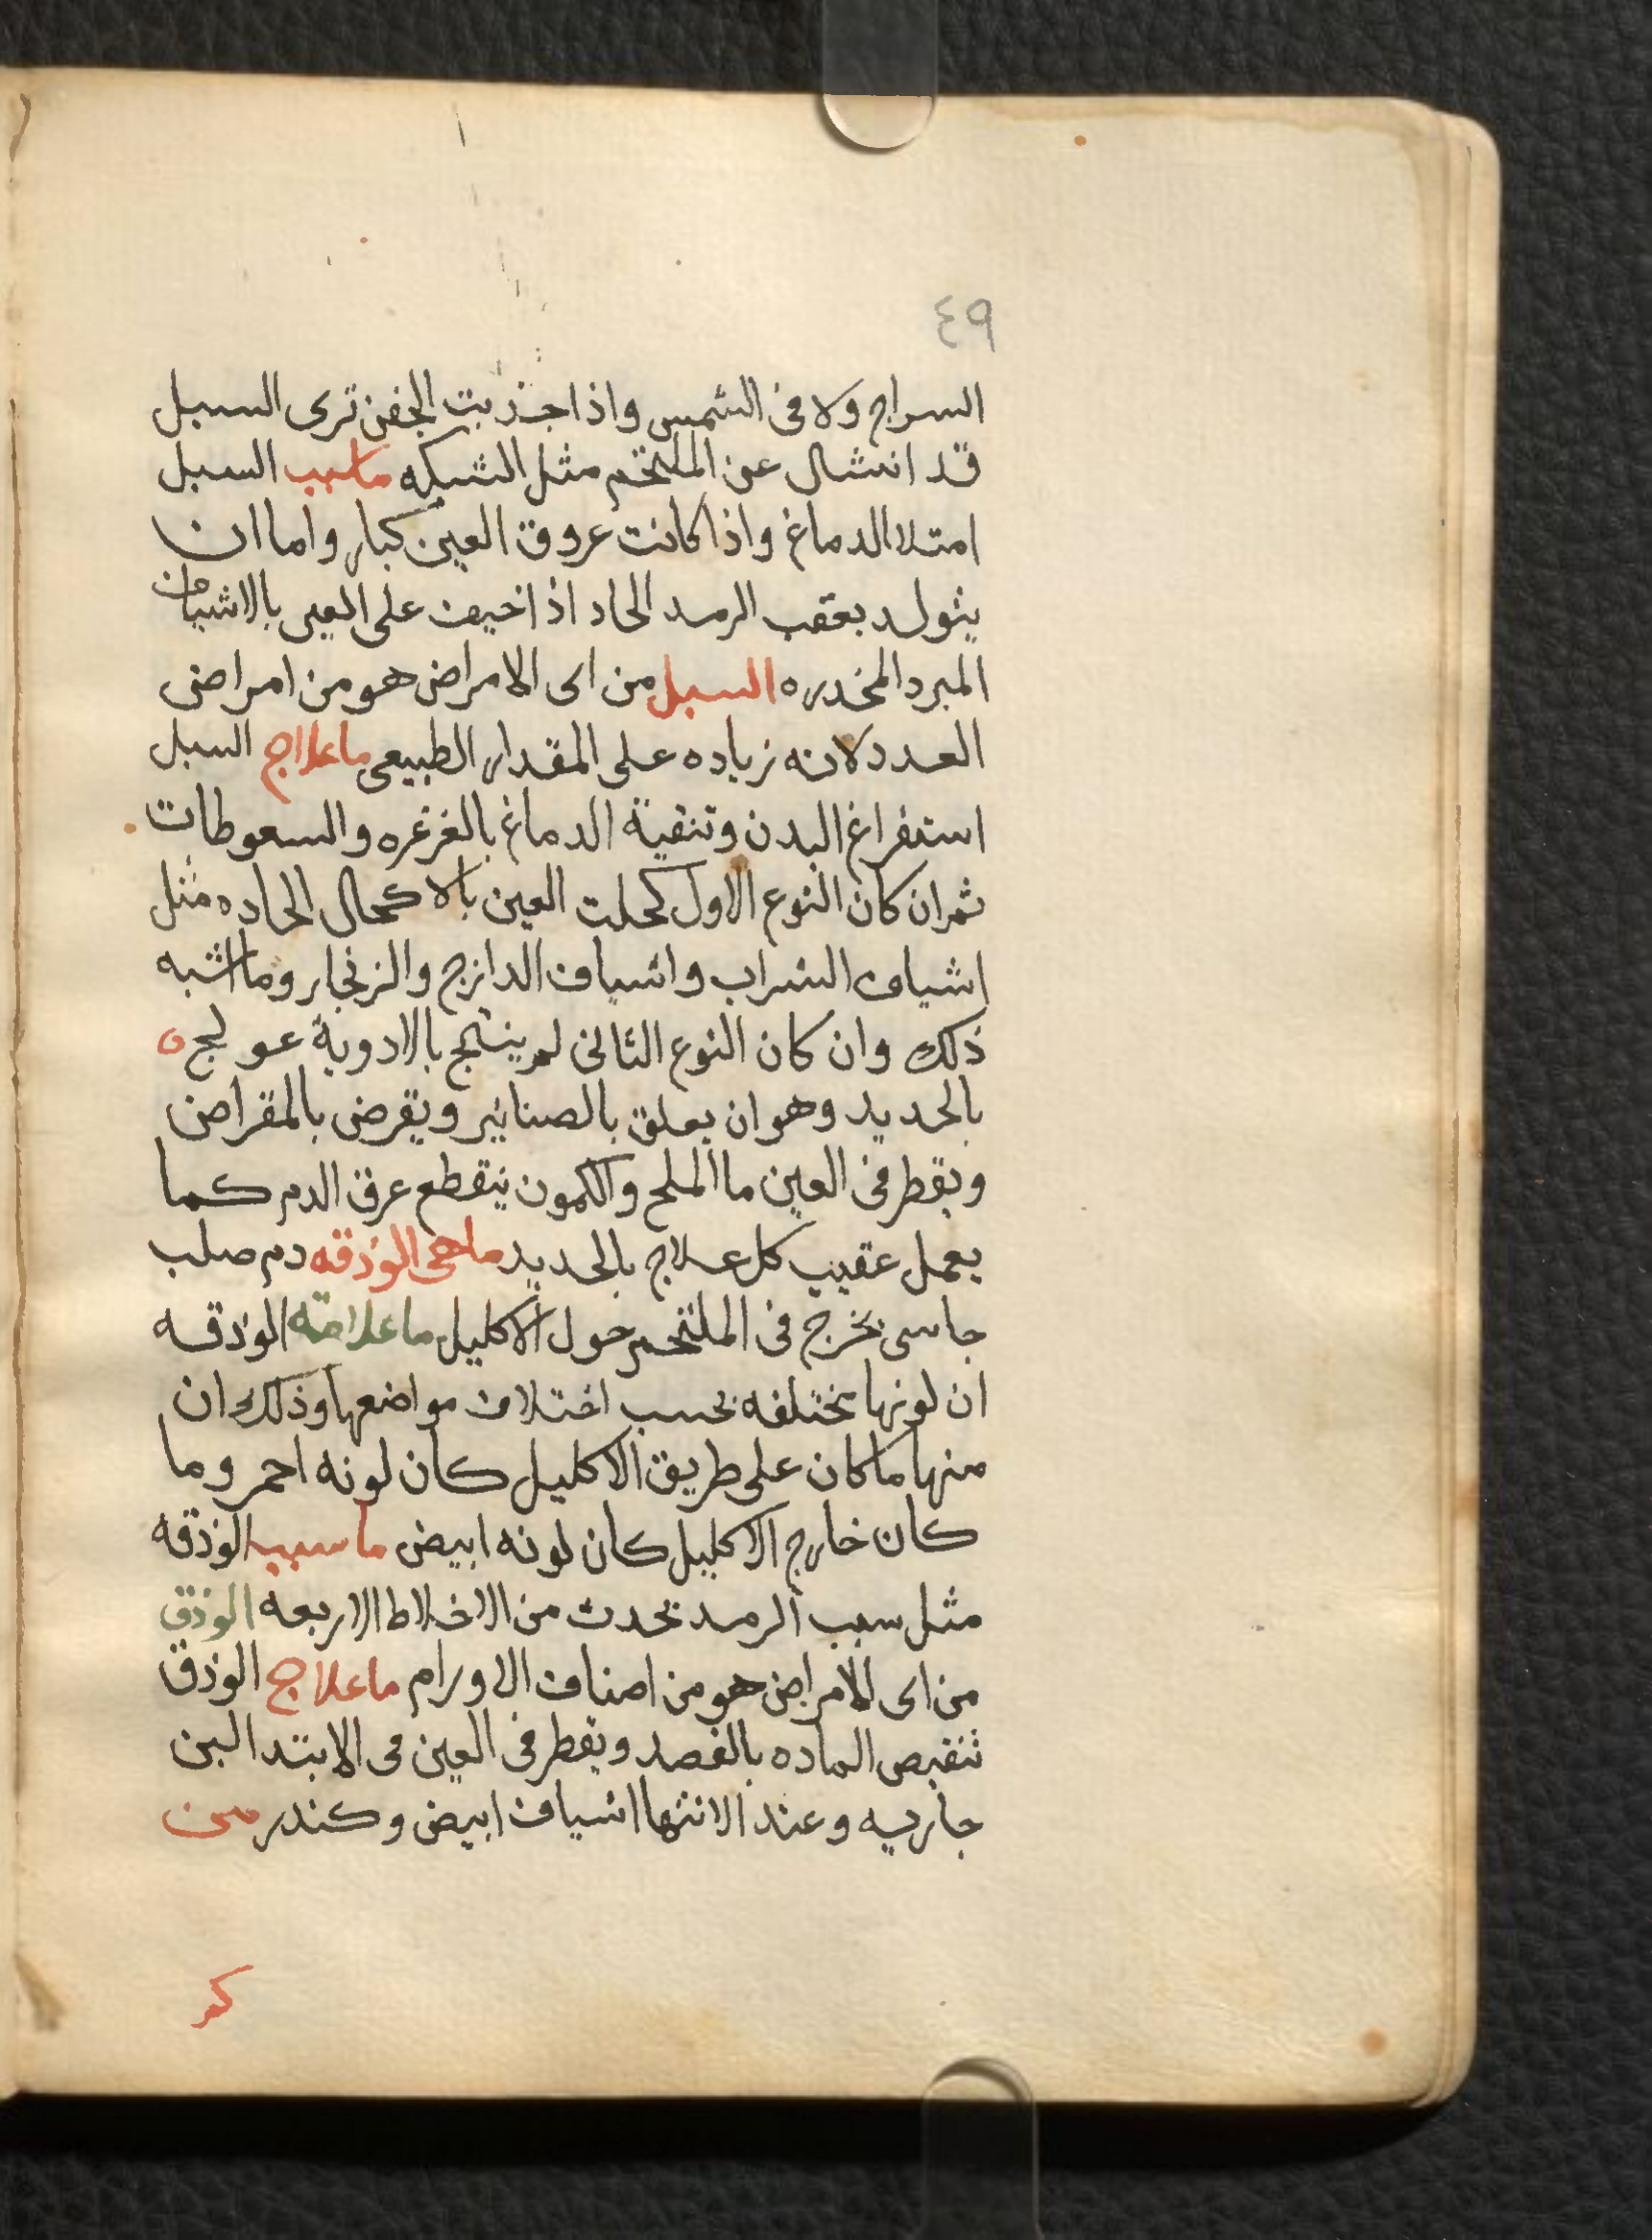 ٤٩
السراج ولا فى الشمس واذا جذبت الجفن ترى السبل
قد انشال عن الملتحم مثل الشبكه ماسبب السبل
امتلا الدماغ واذا كانت عروق العين كبار واما ان
يتولد بعقب الرمد الحاد اذا اخيف على العين بالاشياف
المبرد المخدره السبل من اى الامراض هو من امراض
العدد لانه زياده على المقدار الطبيعى ما علاج السبل
استفراغ البدن وتنقية الدماغ بالغرغره والسعوطات
ثم ان كان النوع الاول كحلت العين بالاكحال الحاده مثل
اشياف الشراب واشياف الدازج والزنجار وما اشبه
ذلك وان كان النوع الثانى لم ينجح بالادوية عولج
بالحديد وهو ان يعلق بالصنانير ويقرض بالمقراض
ويقطر فى العين ما الملح والكمون ينقطع عرق الدم كما
يعمل عقيب كل علاج بالحديد ماهى الوذقه دم صلب
جاسى يخرج فى الملتحم حول الاكليل ما علامة الوذقه
ان لونها يختلفه بحسب اختلاف مواضعها وذلك ان
منها ما كان على طريق الاكليل كان لونه احمر وما
كان خارج الاكليل كان لونه ابيض ما سبب الوذقه
مثل سبب الرمد يحدث من الاخلاط الاربعه الوذق
من اى الامراض هو من اصناف الاورام ما علاج الوذق
تنقيص الماده بالفصد ويقطر فى العين فى الابتد البن
جاريه وعند الانتها اشياف ابيض وكندر